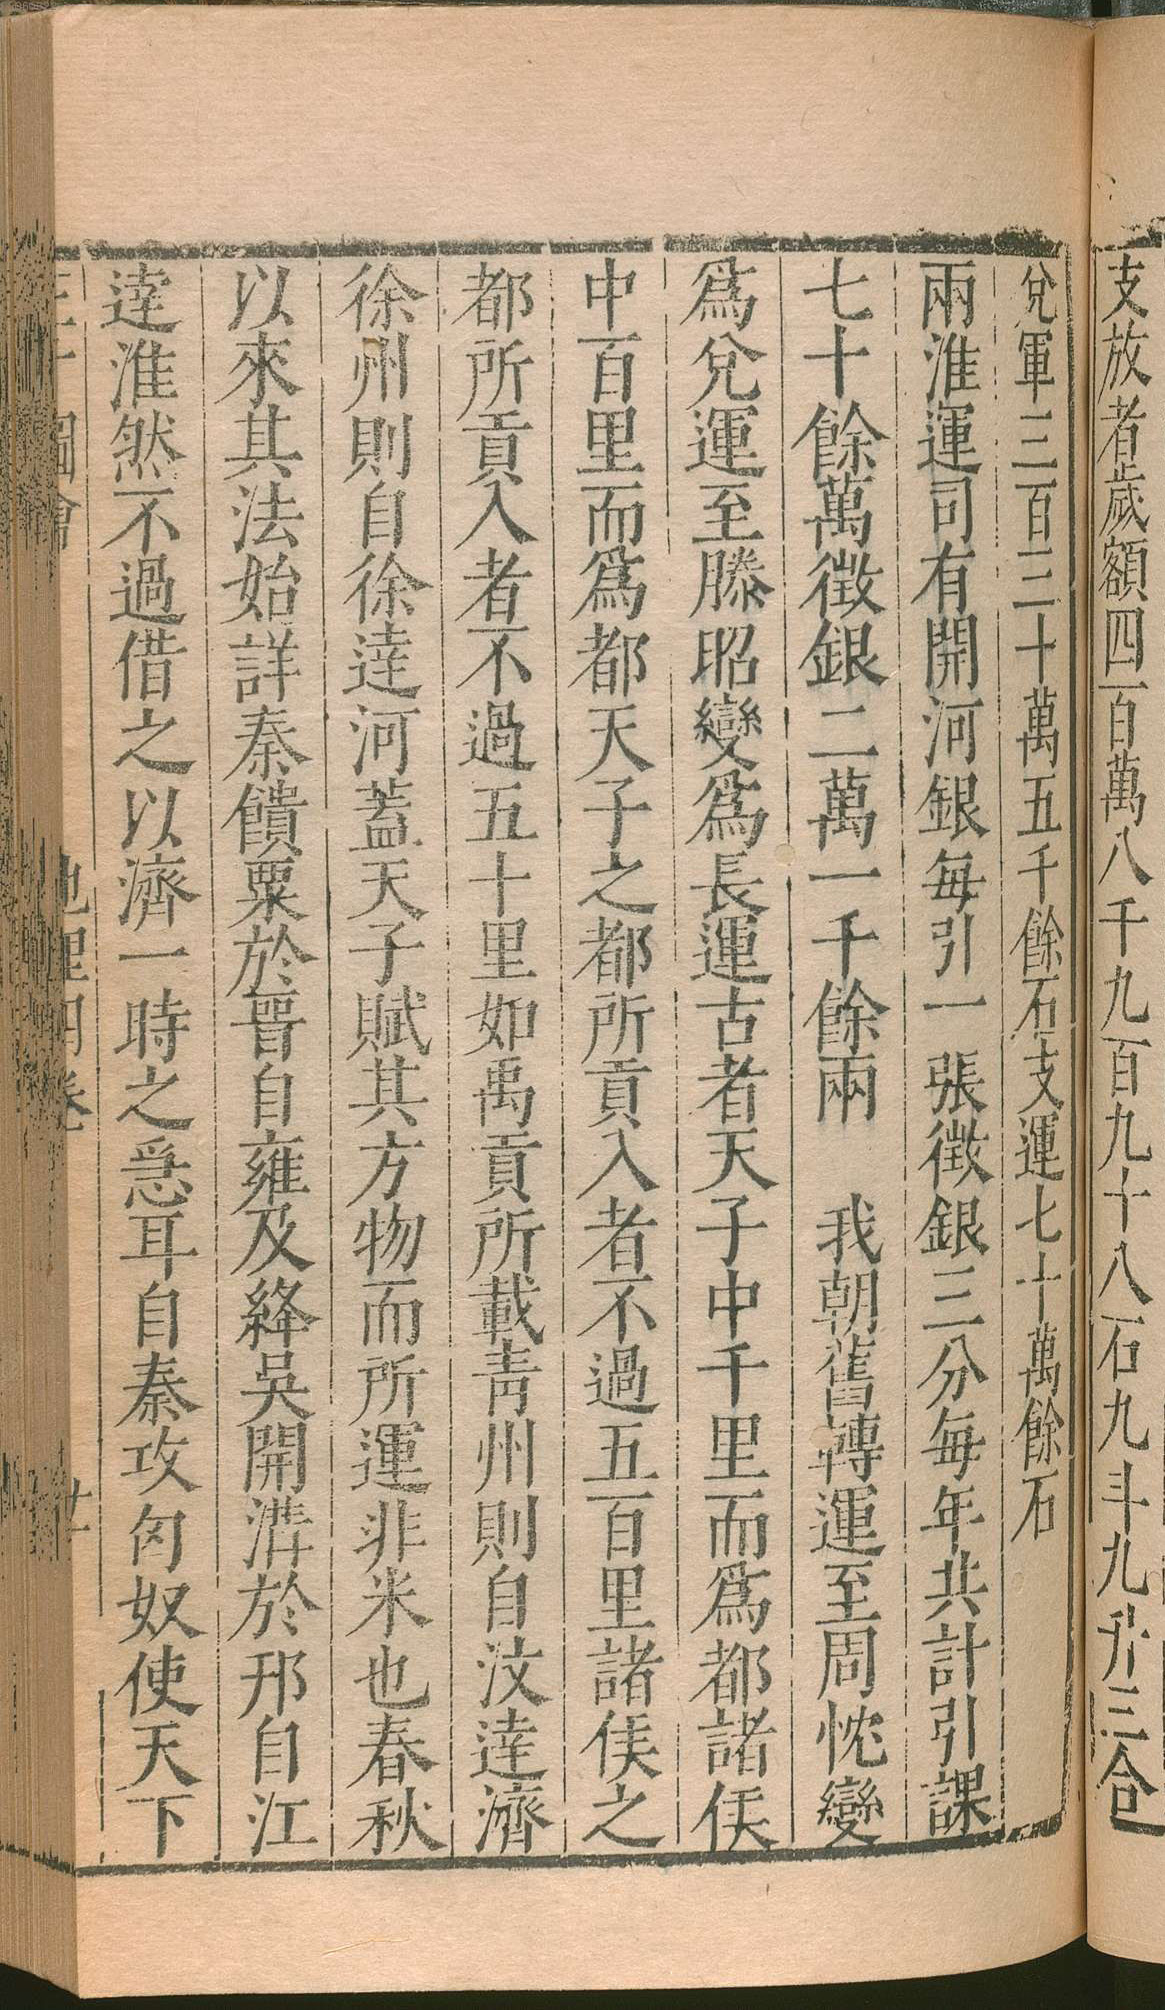 支放者歲額四百萬八千九百九十八石九斗九升三合
兌軍三百三十萬五千餘石支運七十萬餘石
兩淮運司有開河銀每引一張徵銀三分每年共計引課
七十餘萬徵銀二萬一千餘兩　我朝舊轉運至周忱變
爲兌運至滕昭變爲長運古者天子中千里而爲都諸侯
中百里而爲都天子之都所貢入者不過五百里諸侯之
都所貢入者不過五十里如禹貢所載靑州則自汶達濟
徐州則自徐達河蓋天子賦其方物而所運非米也春秋
以來其法始詳秦饋粟於晉自雍及絳吳開溝於邗自江
達淮然不過借之以濟一時之急耳自秦攻匈奴使天下
圖會　地理四卷　廿